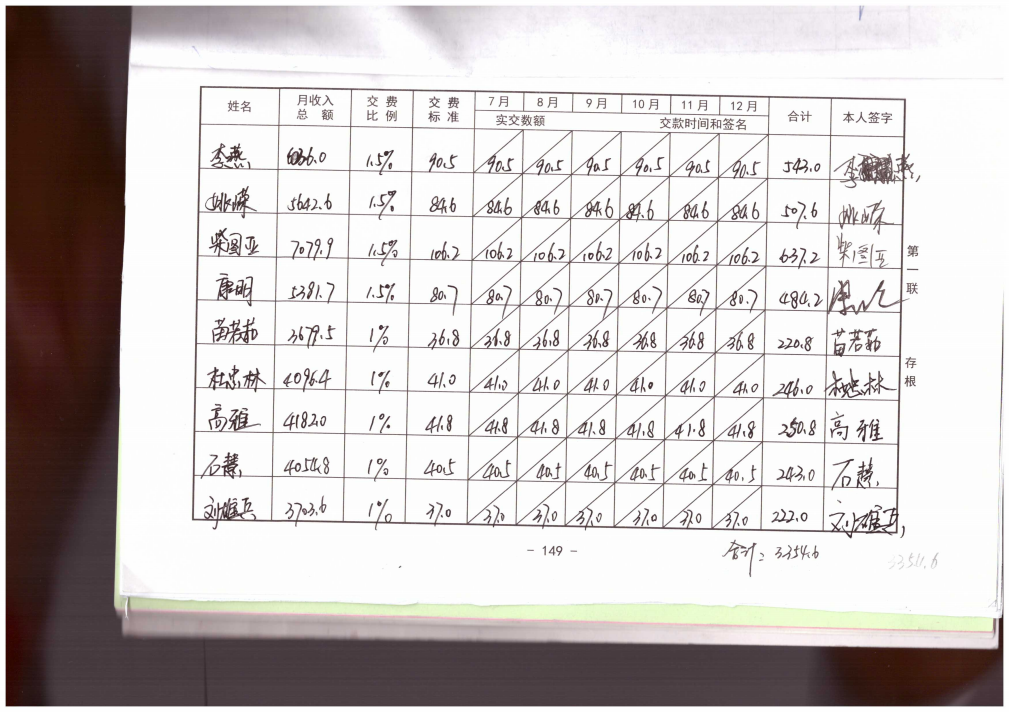 姓名 月收入总额 交费比例 交费标准 7月 8月 9月 10月 11月 12月 合计 本人签字
实交数额 交款时间和签名
李燕 6036.0 1.5% 90.5 90.5 90.5 90.5 90.5 90.5 90.5 543.0 李燕
姚嵘 5642.6 1.5% 84.6 84.6 84.6 84.6 84.6 84.6 84.6 507.6 姚嵘
柴图亚 7079.9 1.5% 106.2 106.2 106.2 106.2 106.2 106.2 106.2 637.2 柴图亚
康明 5381.7 1.5% 80.7 80.7 80.7 80.7 80.7 80.7 80.7 484.2
苗若茹 3679.5 1% 36.8 36.8 36.8 36.8 36.8 36.8 36.8 220.8 苗若茹
杜忠林 4096.4 1% 41.0 41.0 41.0 41.0 41.0 41.0 41.0 246.0 杜忠林
高雅 4182.0 1% 41.8 41.8 41.8 41.8 41.8 41.8 41.8 250.8 高雅
石慧 4054.8 1% 40.5 40.5 40.5 40.5 40.5 40.5 40.5 243.0 石慧
刘雄兵 3703.6 1% 37.0 37.0 37.0 37.0 37.0 37.0 37.0 222.0 刘雄兵
第一联 存根
- 149 -
合计：3354.6
3354.6